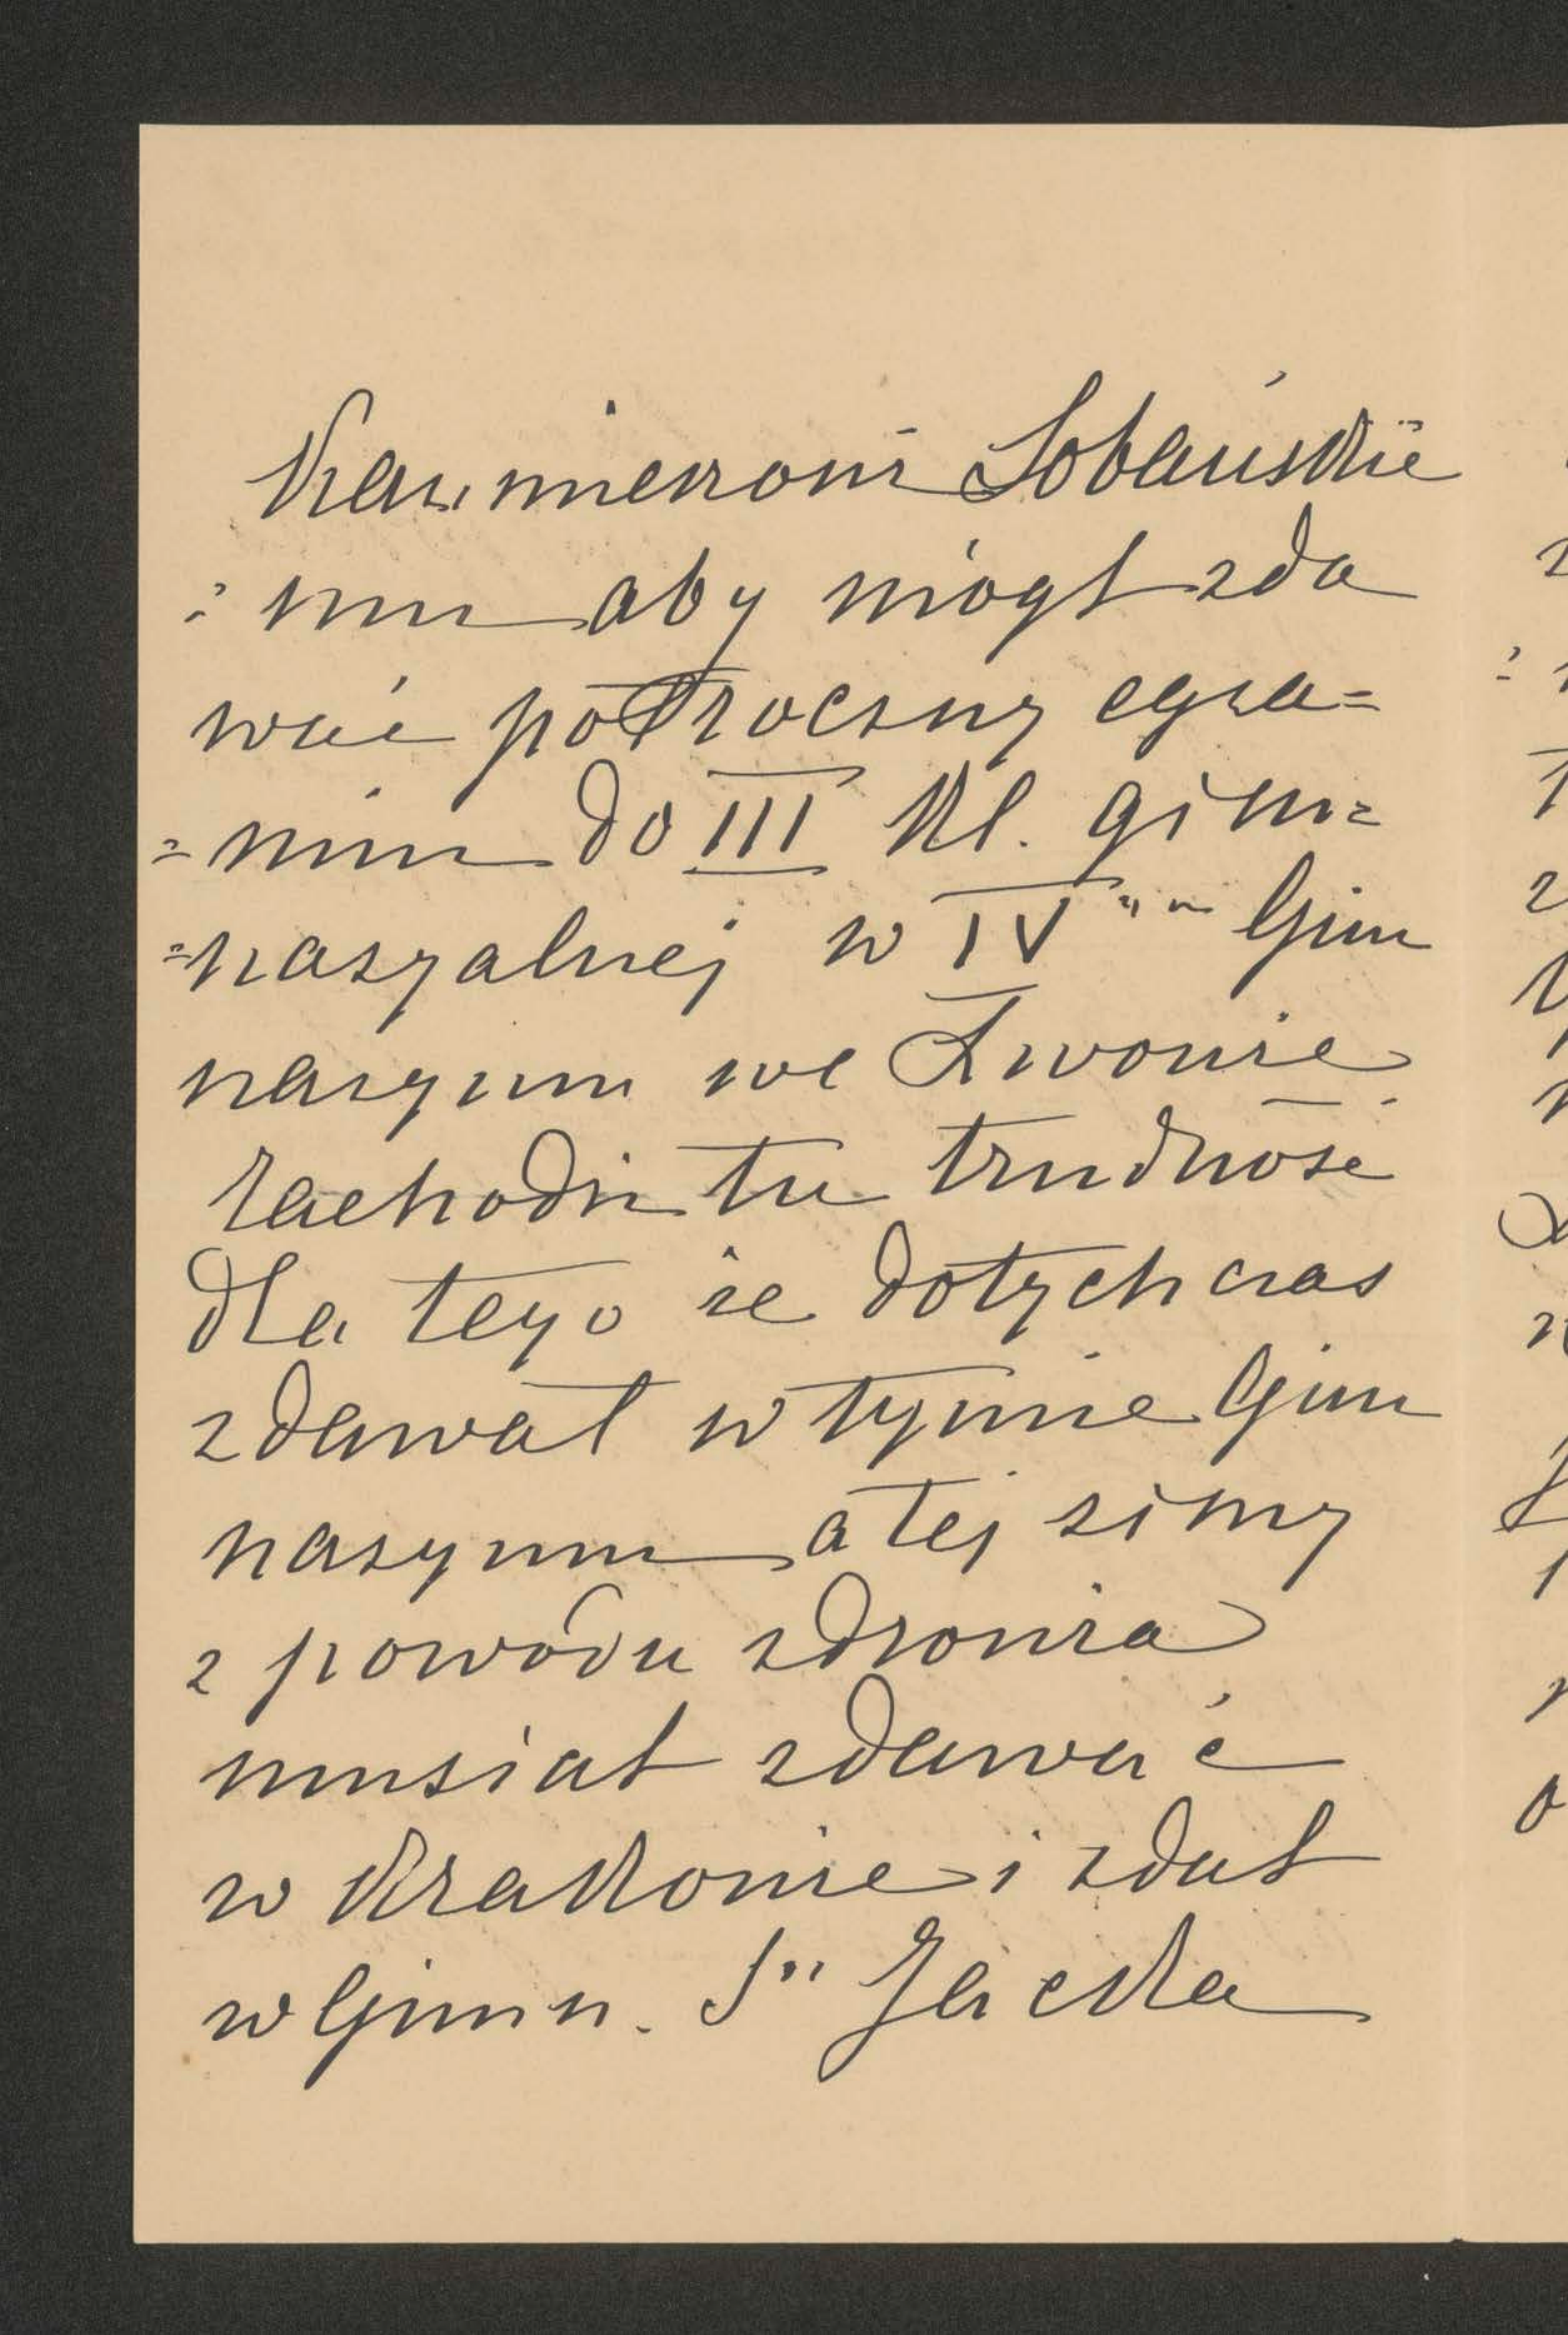 Kazimierzowi Sobańskie
= mu aby mógł zda
wać półroczny egza=
= min do III kl. gim=
=nazyalnej w IV" Gim
nazyum we Lwowie
zachodzi tu trudność
dla tego że dotychczas
zdawał w tymże Gim
nazyum a tej zimy
z powodu zdrowia
musiał zdawać
w Krakowie i zdał
w Gimn. Sº Jacka